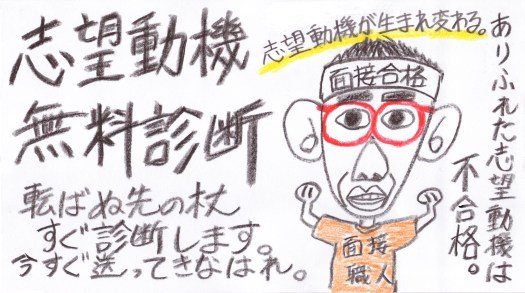 志望動機
無料診断
転ばぬ先の杖
すぐ診断します。
今すぐ送ってきなはれ。
志望動機が生まれ変わる。
面接合格
面接
職人
ありふれた志望動機は
不合格。